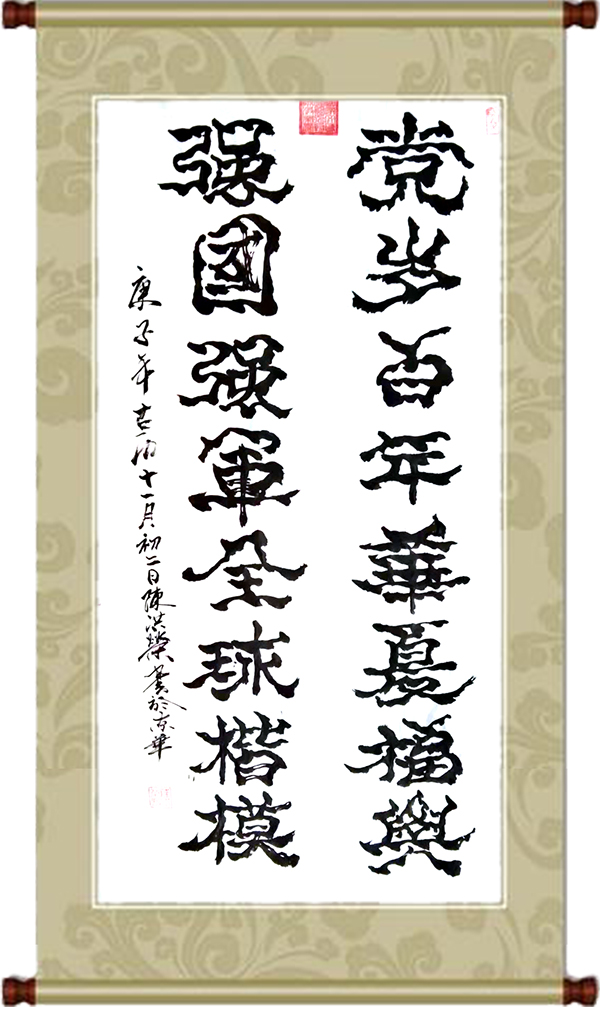 党岁百年華夏福興
强國强軍全球楷模
庚子年古历十一月初二日陳洪榮書於京華